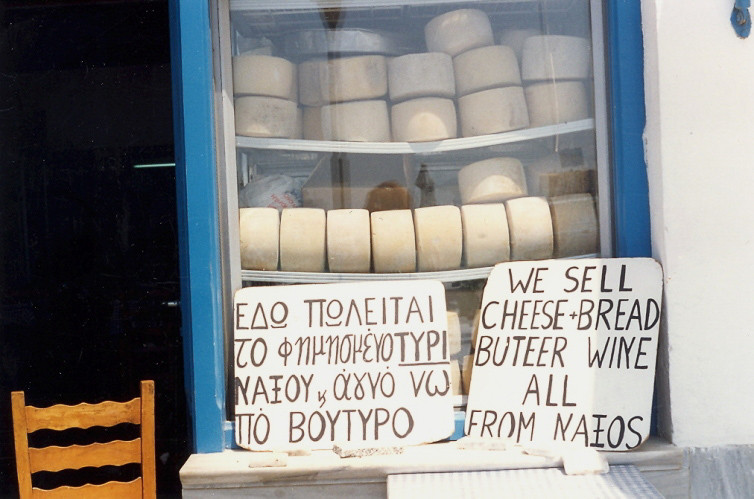 ΕΔΩ ΠΩΛΕΙΤΑΙ
ΤΟ ΦΗΜΗΣΜΕΝΟ ΤΥΡΙ
ΝΑΞΟΥ κ ἁγνό νω
πό ΒΟΥΤΥΡΟ
WE SELL
CHEESE+BREAD
BUTEER WINE
ALL
FROM NAΞOS